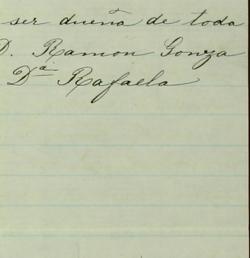 ser dueña de toda
D. Ramon Gonza
Dª Rafaela